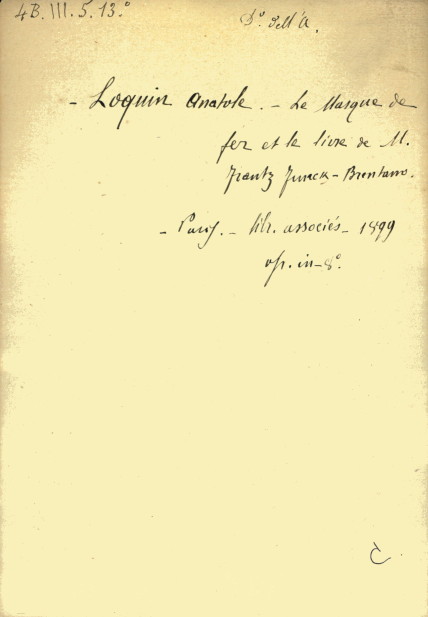 4B.III.5.13.°
D.° dell'A.
- Loquin Anatole. - Le Masque de
fer et le livre de M.
Frantz Funck-Brentano.
- Paris. - libr. associés - 1899
op. in-8°.
C.